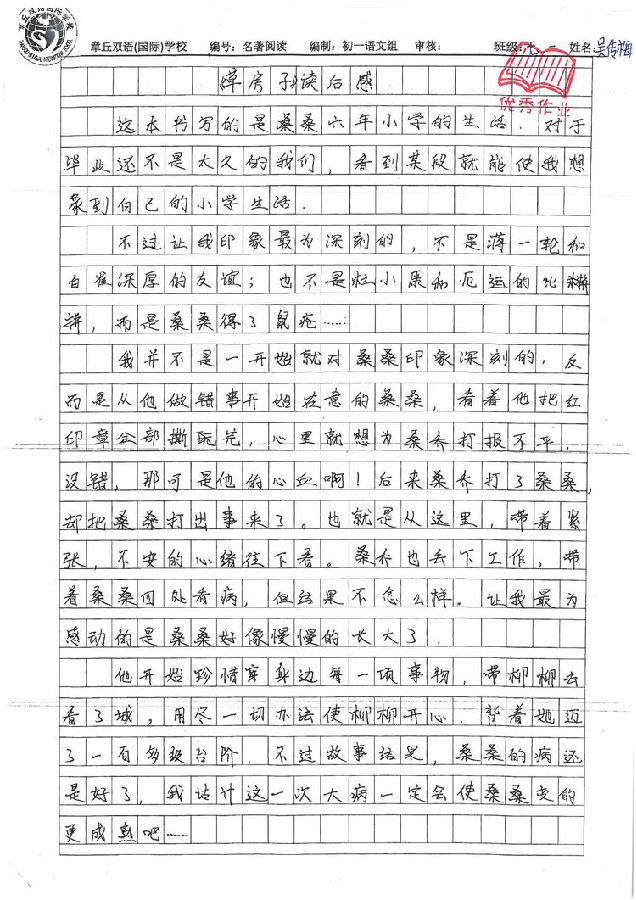 章丘双语(国际)学校 编号：名著阅读 编制：初一语文组 审核： 班级： 姓名：
优秀作业
《草房子》读后感
这本书写的是桑桑六年小学的生活．对于
毕业还不是太久的我们，看到某段就能使我想
象到自己的小学生活．
不过让我印象最为深刻的，不是蒋一轮和
白雀深厚的友谊；也不是杜小康和厄运的比拼
拼，而是桑桑得了鼠疮……
我并不是一开始就对桑桑印象深刻的．反
而是从他做错事开始在意的桑桑，看着他把红
印章全部撕玩完，心里就想为桑乔打报不平．
没错，那可是他的心血啊！后来桑乔打了桑桑，
却把桑桑打出事来了。也就是从这里，带着紧
张，不安的心绪往下看。桑乔也丢下工作，带
着桑桑四处看病，但结果不怎么样。让我最为
感动的是桑桑好像慢慢的长大了．
他开始珍惜穿身边每一项事物，带柳柳去
看了城，用尽一切办法使柳柳开心．背着她迈
了一百多级台阶．不过故事结果，桑桑的病还
是好了，我估计这一次大病一定会使桑桑变的
更成熟吧……